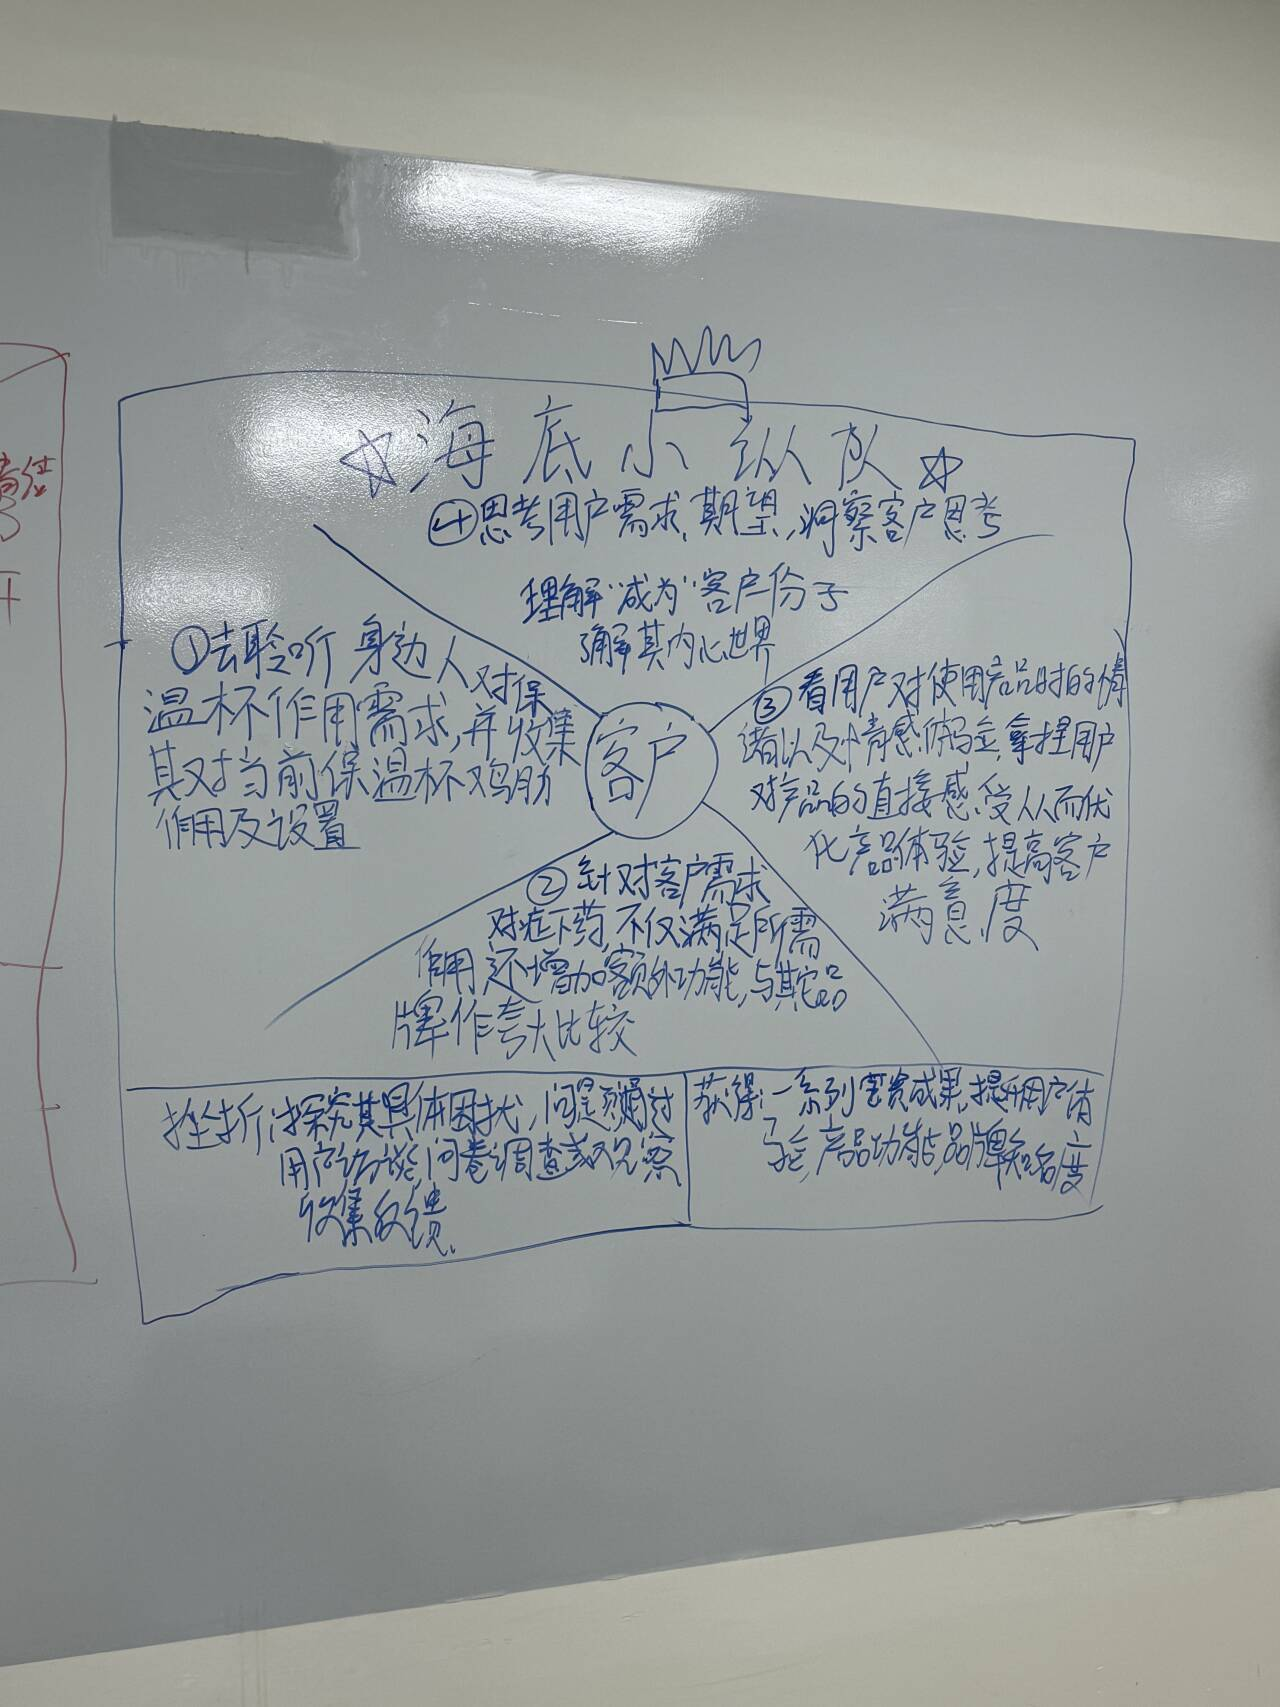 海底小纵队
④思考用户需求、期望,洞察客户思考
理解"成为"客户份子
了解其内心世界
①去聆听身边人对保
温杯作用需求,并收集
其对当前保温杯鸡肋
作用及设置
客户
③看用户对使用产品时的情
绪以及情感,拿捏用户
对产品的直接感受从而优
化产品体验,提高客户
满意度
②针对客户需求
对症下药,不仅满足所需
作用还增加额外功能,与其它品
牌作夸大比较
挫折:探究其具体困扰,问题须通过
用户访谈,问卷调查或观察
收集反馈.
获得:一系列宝贵成果,提升用户体
验,产品功能,品牌知名度